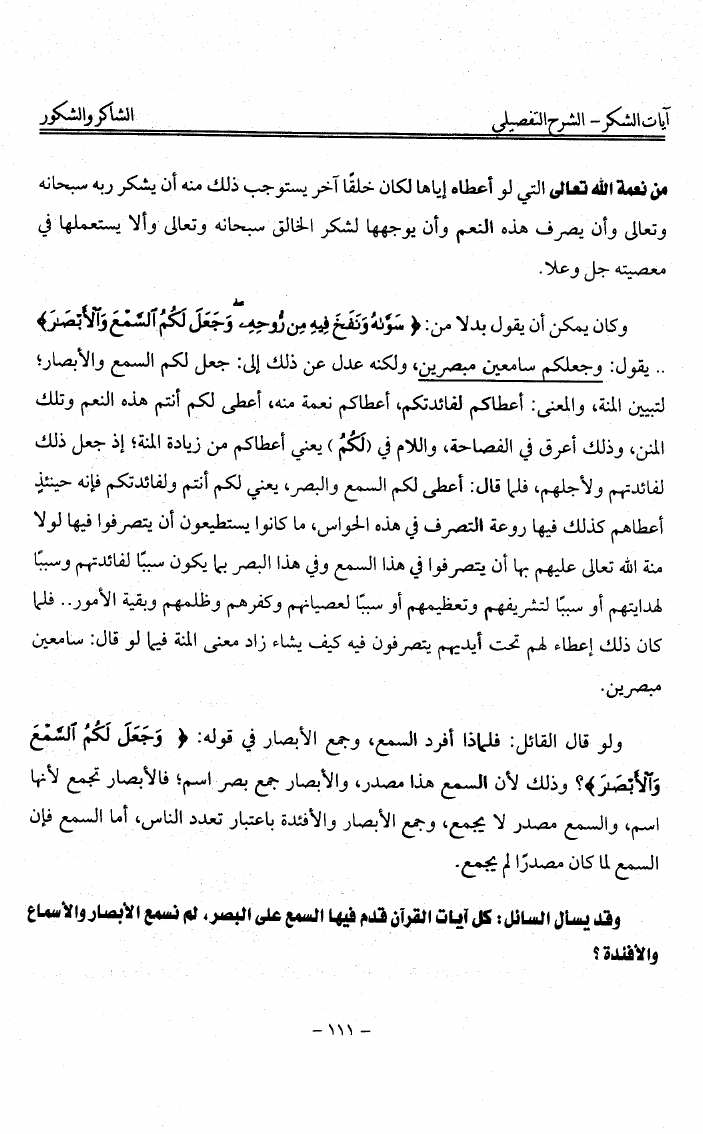 آيات الشكر – الشرح التفصيلي الشاكر والشكور
من نعمة الله تعالى التي لو أعطاه إياها لكان خلقًا آخر يستوجب ذلك منه أن يشكر ربه سبحانه
وتعالى وأن يصرف هذه النعم وأن يوجهها لشكر الخالق سبحانه وتعالى وألا يستعملها في
معصيته جل وعلا.
وكان يمكن أن يقول بدلا من: ﴿ سَوَّىٰهُ وَنَفَخَ فِيهِ مِن رُّوحِهِۦ ۖ وَجَعَلَ لَكُمُ ٱلسَّمْعَ وَٱلْأَبْصَٰرَ ﴾
.. يقول: وجعلكم سامعين مبصرين، ولكنه عدل عن ذلك إلى: جعل لكم السمع والأبصار؛
لتبيين المنة، والمعنى: أعطاكم لفائدتكم، أعطاكم نعمة منه، أعطى لكم أنتم هذه النعم وتلك
المنن، وذلك أعرق في الفصاحة، واللام في (لَكُمُ) يعني أعطاكم من زيادة المنة؛ إذ جعل ذلك
لفائدتهم ولأجلهم، فلما قال: أعطى لكم السمع والبصر، يعني لكم أنتم ولفائدتكم فإنه حينئذٍ
أعطاهم كذلك فيها روعة التصرف في هذه الحواس، ما كانوا يستطيعون أن يتصرفوا فيها لولا
منة الله تعالى عليهم بها أن يتصرفوا في هذا السمع وفي هذا البصر بما يكون سببًا لفائدتهم وسببًا
لهدايتهم أو سببًا لتشريفهم وتعظيمهم أو سببًا لعصيانهم وكفرهم وظلمهم وبقية الأمور.. فلما
كان ذلك إعطاء لهم تحت أيديهم يتصرفون فيه كيف يشاء زاد معنى المنة فيما لو قال: سامعين
مبصرين.
ولو قال القائل: فلماذا أفرد السمع، وجمع الأبصار في قوله: ﴿ وَجَعَلَ لَكُمُ ٱلسَّمْعَ
وَٱلْأَبْصَٰرَ ﴾؟ وذلك لأن السمع هذا مصدر، والأبصار جمع بصر اسم؛ فالأبصار تجمع لأنها
اسم، والسمع مصدر لا يجمع، وجمع الأبصار والأفئدة باعتبار تعدد الناس، أما السمع فإن
السمع لما كان مصدرًا لم يجمع.
وقد يسأل السائل: كل آيات القرآن قدم فيها السمع على البصر، لم نسمع الأبصار والأسماع
والأفئدة؟
– ١١١ –